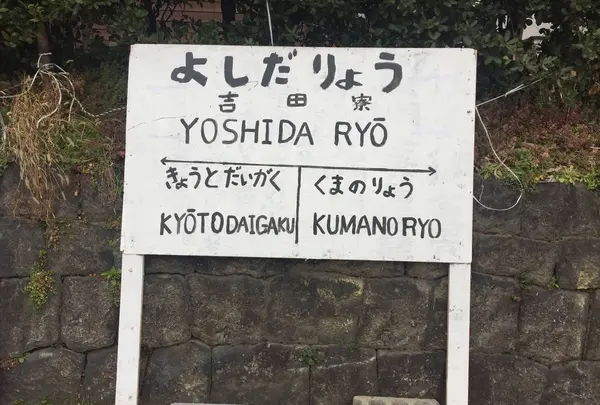 よしだりょう
吉田寮
YOSHIDA RYŌ
きょうとだいがく くまのりょう
KYŌTODAIGAKU KUMANORYO